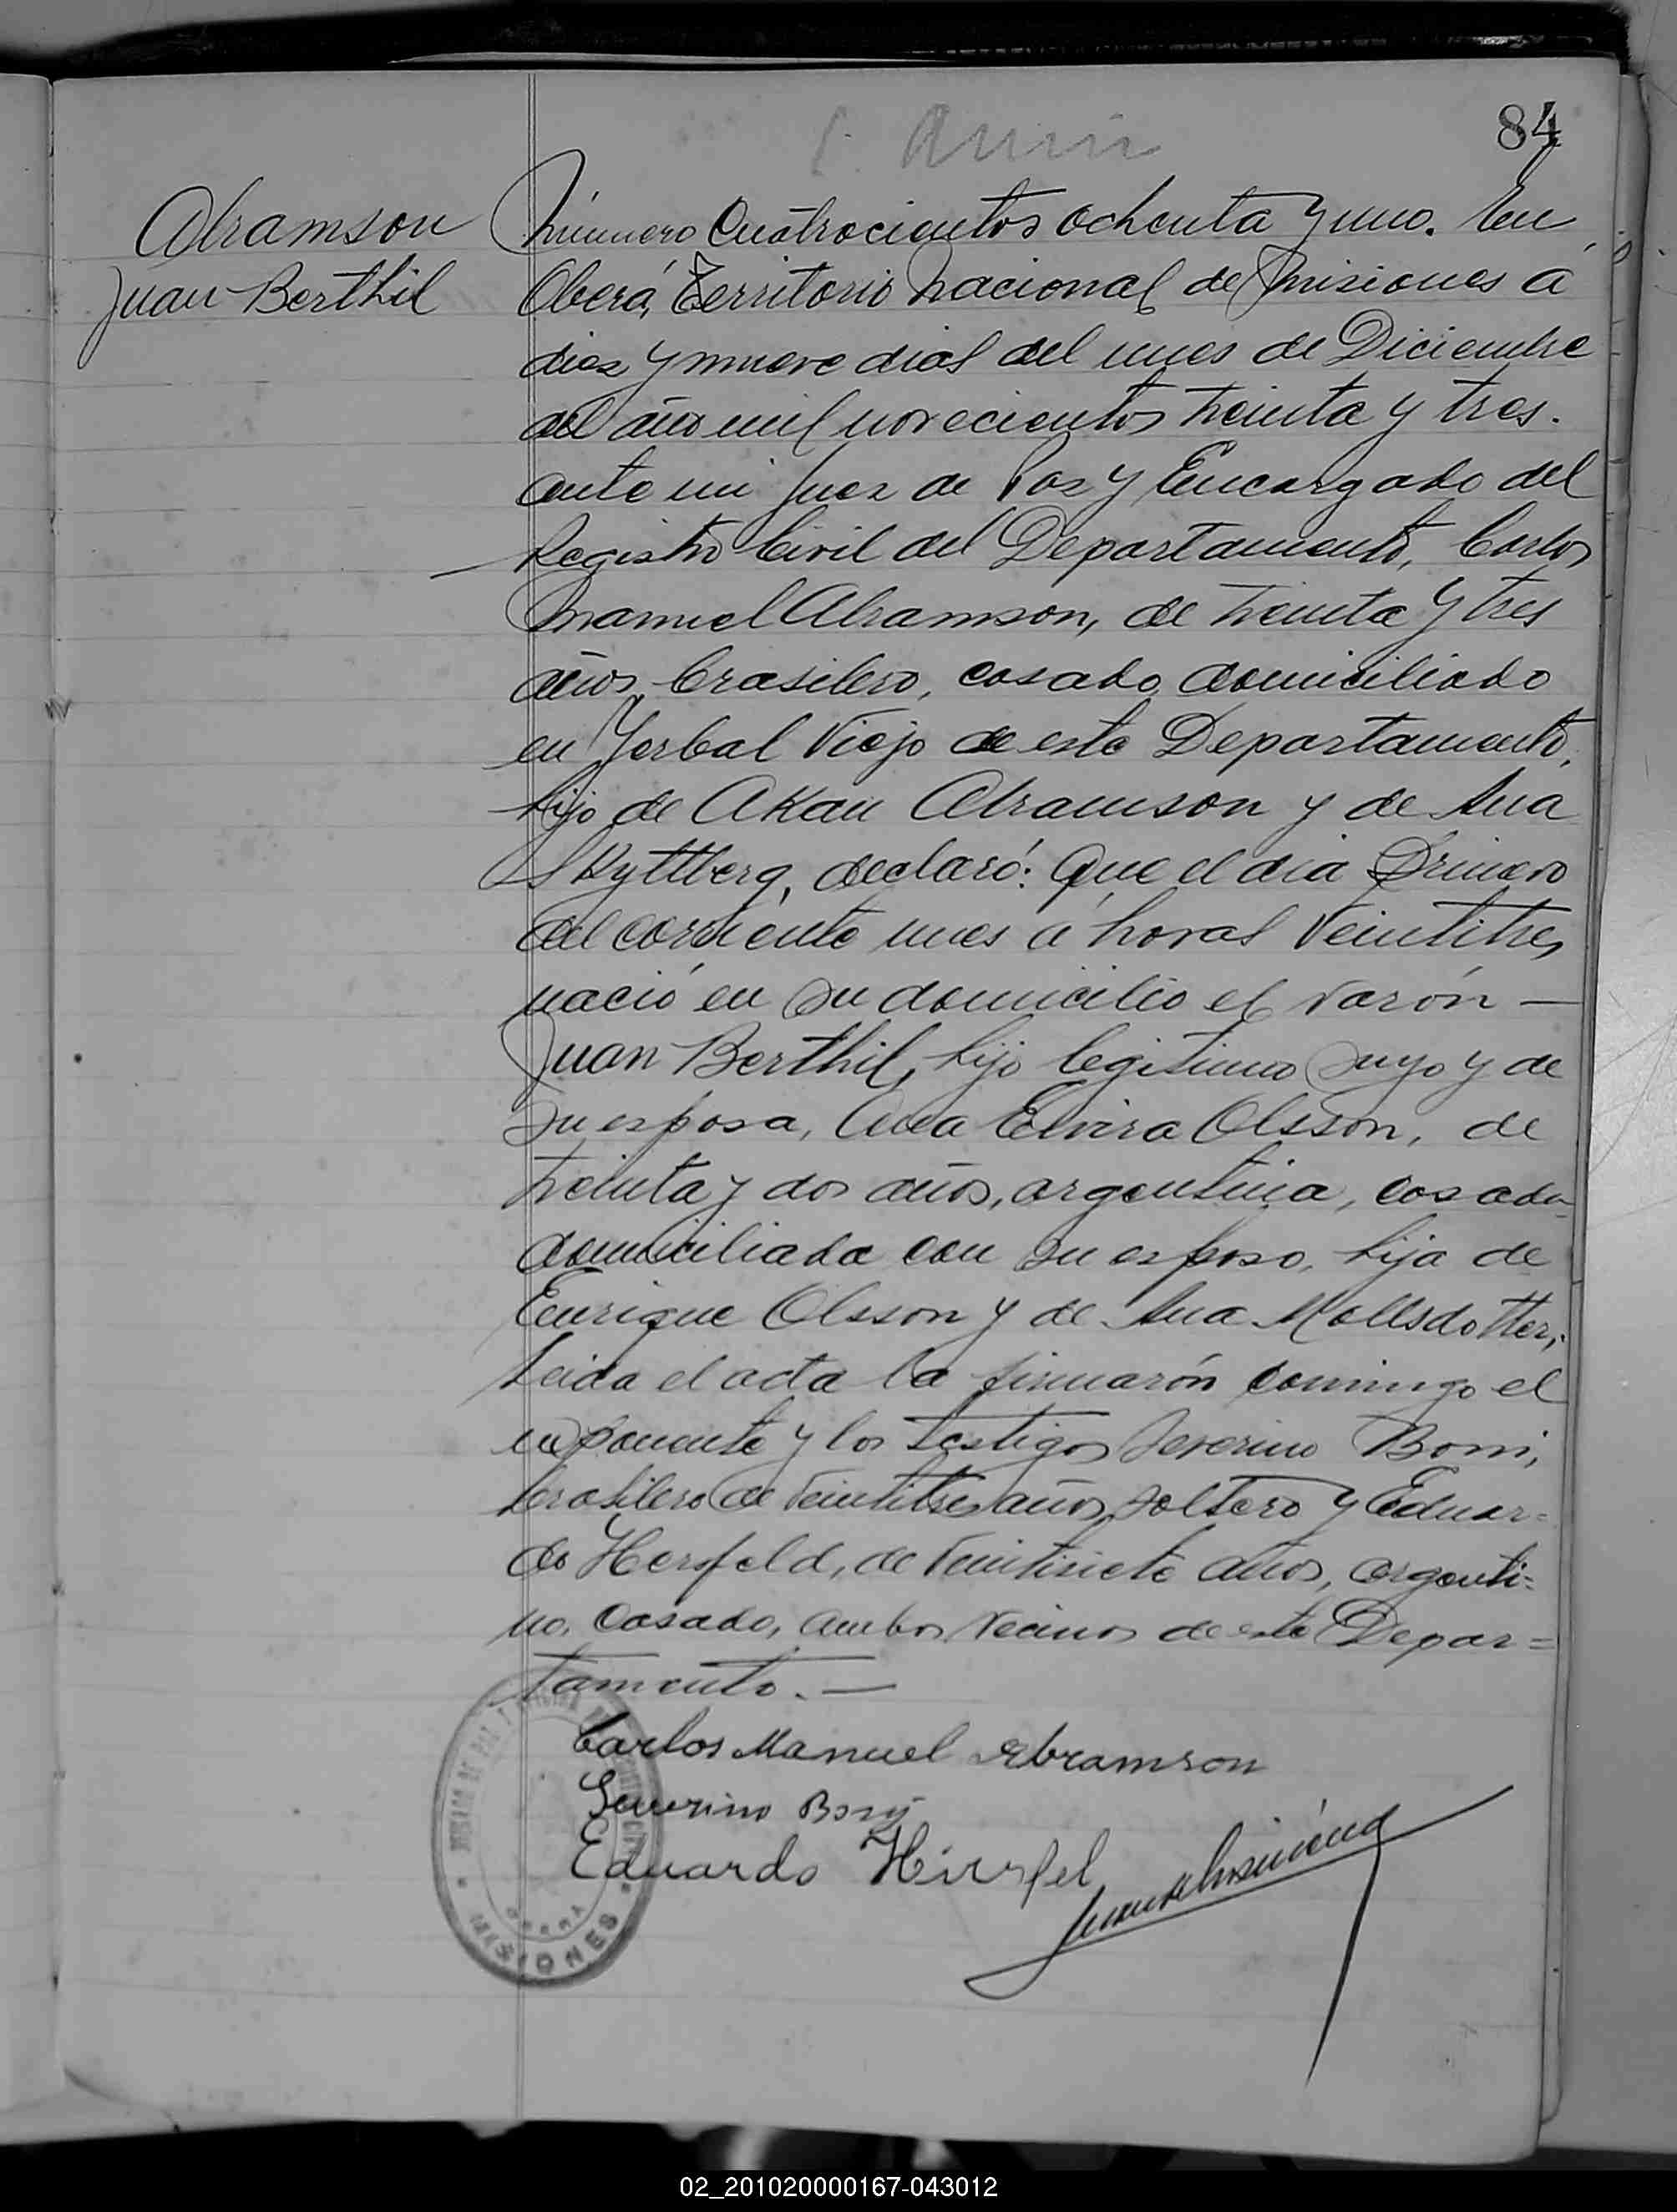 84
Abramson
Juan Berthil
Número Cuatrocientos ochenta y uno. En
Oberá, Territorio Nacional de Misiones a
diez y nueve dias del mes de Diciembre
del año mil novecientos treinta y tres.
ante mi Juez de Paz y Encargado del
Registro Civil del Departamento, Carlos
Manuel Abramson, de treinta y tres
años, brasilero, casado, domiciliado
en Yerbal Viejo de este Departamento,
hijo de Akan Abramson y de Ana
Skyttberg, declaró: Que el dia Primero
del corriente mes a horas veintitres,
nació en su domicilio el varón —
Juan Berthil, hijo legitimo suyo y de
su esposa, Ana Elvira Olsson, de
treinta y dos años, argentina, casada
domiciliada con su esposo, hija de
Enrique Olsson y de Ana Mollsdotter,
Leida el acta la firmarón conmigo el
exponente y los testigos Severino Boni,
brasilero de veintitres años, soltero y Eduar=
do Hersfeld, de veintisiete años, argenti=
no, casado, ambos vecinos de este Depar=
tamento. —
Carlos Manuel Abramson
Severino
Eduardo Hirsfel
MISIONES
02_201020000167-043012